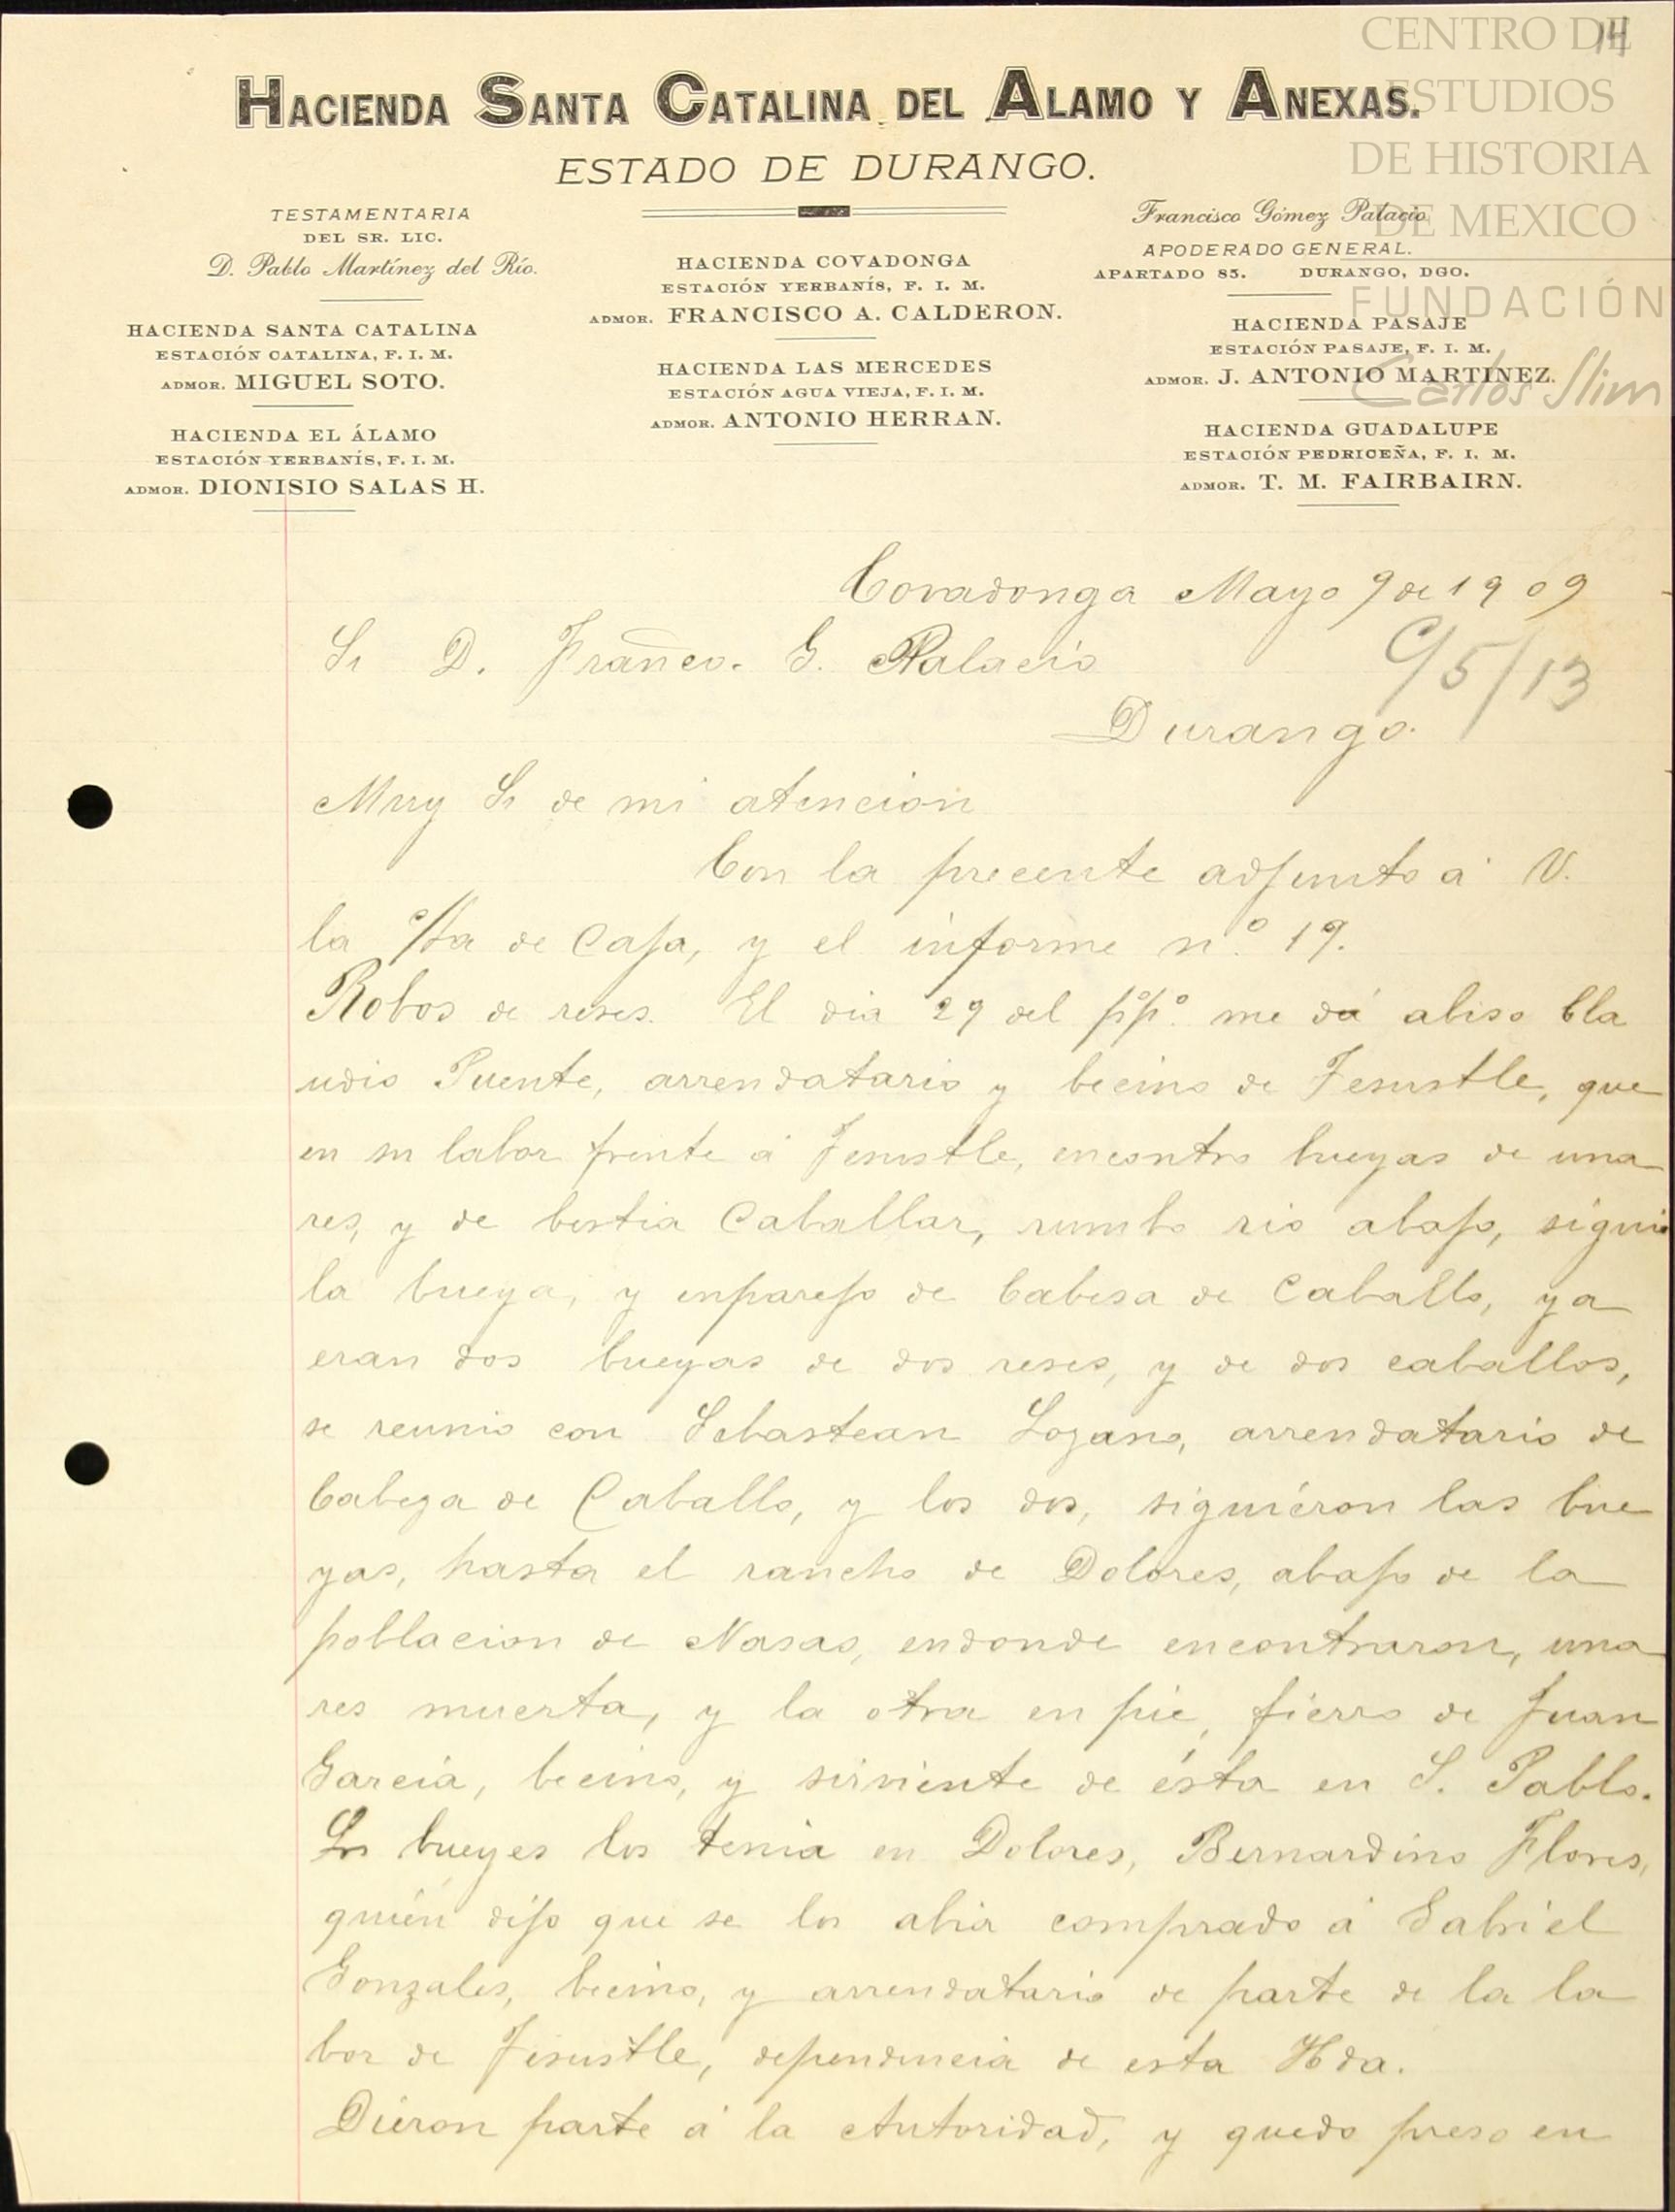 14
CENTRO DE
ESTUDIOS
DE HISTORIA
DE MEXICO
FUNDACIÓN
Carlos Slim
HACIENDA SANTA CATALINA DEL ALAMO Y ANEXAS.
ESTADO DE DURANGO.
TESTAMENTARIA
DEL SR. LIC.
D. Pablo Martínez del Río.
HACIENDA SANTA CATALINA
ESTACIÓN CATALINA, F. I. M.
ADMOR. MIGUEL SOTO.
HACIENDA EL ÁLAMO
ESTACIÓN YERBANÍS, F. I. M.
ADMOR. DIONISIO SALAS H.
HACIENDA COVADONGA
ESTACIÓN YERBANÍS, F. I. M.
ADMOR. FRANCISCO A. CALDERON.
HACIENDA LAS MERCEDES
ESTACIÓN AGUA VIEJA, F. I. M.
ADMOR. ANTONIO HERRAN.
Francisco Gómez Palacio
APODERADO GENERAL.
APARTADO 85. DURANGO, DGO.
HACIENDA PASAJE
ESTACIÓN PASAJE, F. I. M.
ADMOR. J. ANTONIO MARTINEZ.
HACIENDA GUADALUPE
ESTACIÓN PEDRICEÑA, F. I. M.
ADMOR. T. M. FAIRBAIRN.
Covadonga Mayo 9 de 1909
Sr D. Franco. G. Palacio
C/5/13
Durango.
Muy Sr de mi atencion
Con la precente adjunto á V.
la c/ta de Caja, y el informe nº. 19.
Robos de reses. El dia 29 del p.p.º me dá abiso Cla
udio Puente, arrendatario y becino de Jesustle, que
en su labor frente á Jesustle, encontro hueyas de una
res, y de bestia Caballar, rumbo rio abajo, siguio
la hueya, y enparejo de Cabesa de Caballo, ya
eran dos hueyas de dos reses, y de dos caballos,
se reunio con Sebastean Lozano, arrendatario de
Cabeza de Caballo, y los dos, siguiéron las hue
yas, hasta el rancho de Dolores, abajo de la
poblacion de Nasas, endonde encontraron, una
res muerta, y la otra en pie, fierro de Juan
García, becino, y sirviente de ésta en S. Pablo.
Los bueyes los tenia en Dolores, Bernardino Flores,
quién dijo que se los abia comprado á Gabriel
Gonzales, becino, y arrendatario de parte de la la
bor de Jesustle, dependencia de esta Hda.
Diéron parte á la Autoridad, y quedo preso en